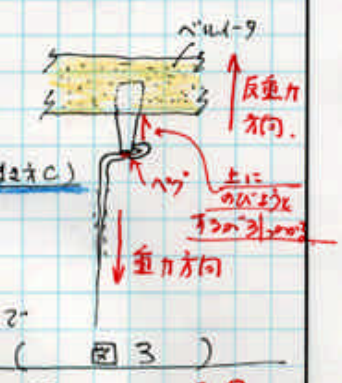 ベルイータ
反重力
方向.
上に
のびようと
するが引っかかる
重力方向
で
(図 3)